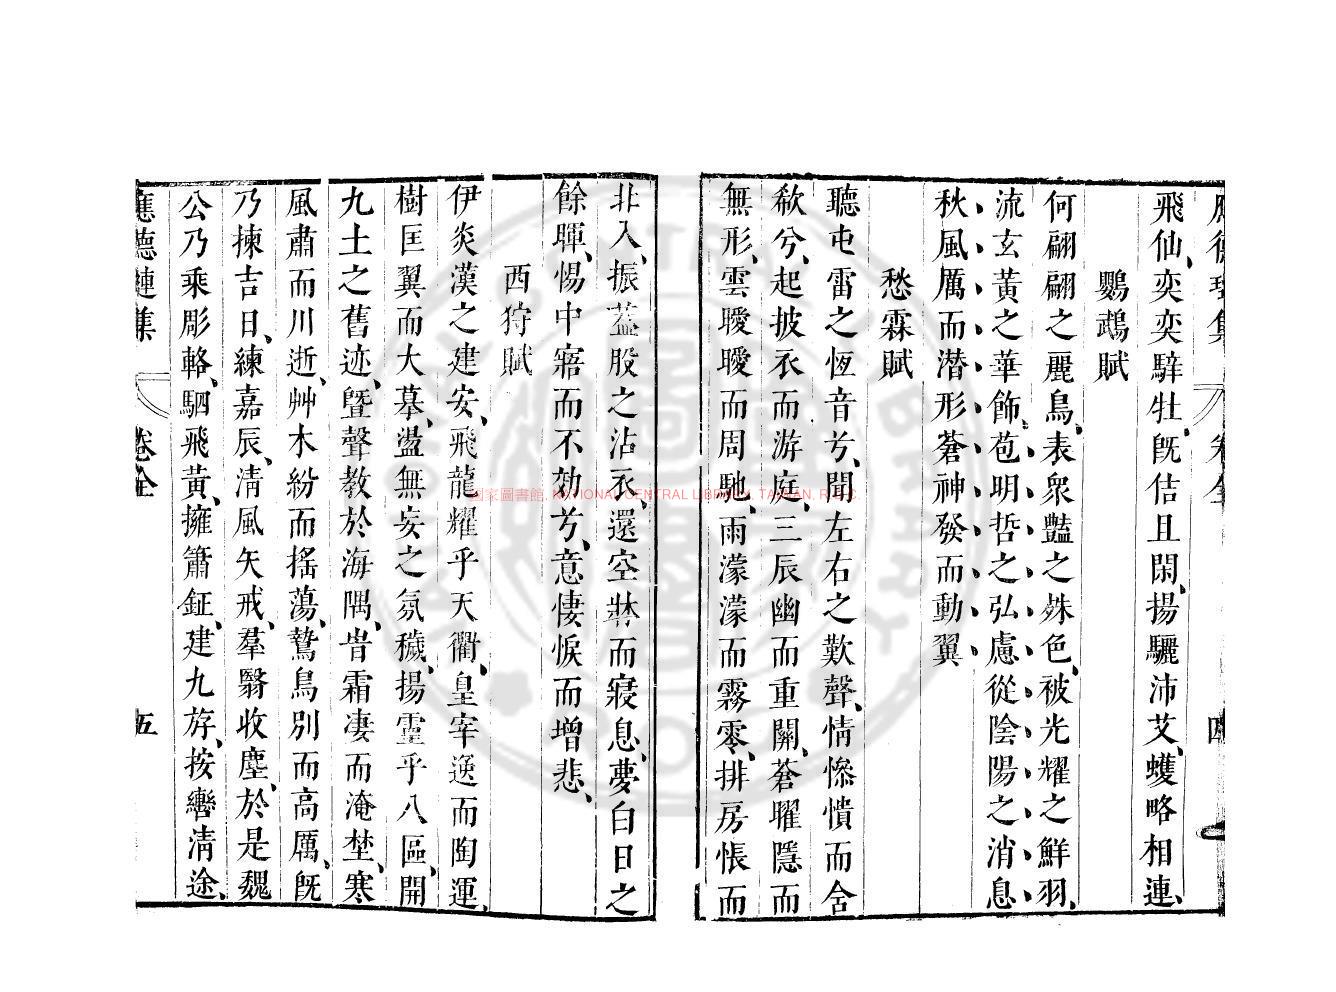 應德璉集 卷全 四
飛仙、奕奕騂牡、旣佶且閑、揚驪沛艾、蠖略相連、
鸚鵡賦
何翩翩之麗鳥、表衆豔之殊色、被光耀之鮮羽、
流玄黃之華飾、苞明哲之弘慮、從陰陽之消息、
秋風厲而潛形、蒼神發而動翼、
愁霖賦
聽屯雷之恆音兮、聞左右之歎聲、情慘憒而含
欷兮、起披衣而游庭、三辰幽而重關、蒼曜隱而
無形、雲曖曖而周馳、雨濛濛而霧零、排房帳而
北入、振蓋股之沾衣、還空牀而寢息、夢白日之
餘暉、惕中寤而不効兮、意悽悷而增悲、
西狩賦
伊炎漢之建安、飛龍耀乎天衢、皇宰逸而陶運、
樹匡翼而大摹、盪無妄之氛穢、揚靈乎八區、開
九土之舊迹、曁聲教於海隅、旹霜凄而淹埜、寒
風肅而川逝、艸木紛而搖蕩、鷙鳥別而高厲、旣
乃揀吉日、練嘉辰、清風矢戒、羣翳收塵、於是魏
公乃乘彫輅、駟飛黃、擁簫鉦、建九斿、按轡清途、
應德璉集 卷全 五
國家圖書館, NATIONAL CENTRAL LIBRARY, TAIWAN, R.O.C.